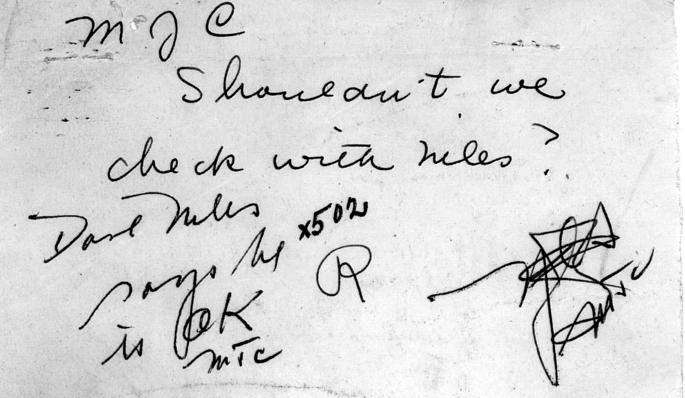 MJC
Shouldn't we
check with Niles?
Dave Niles
says he x502
is OK R
MJC